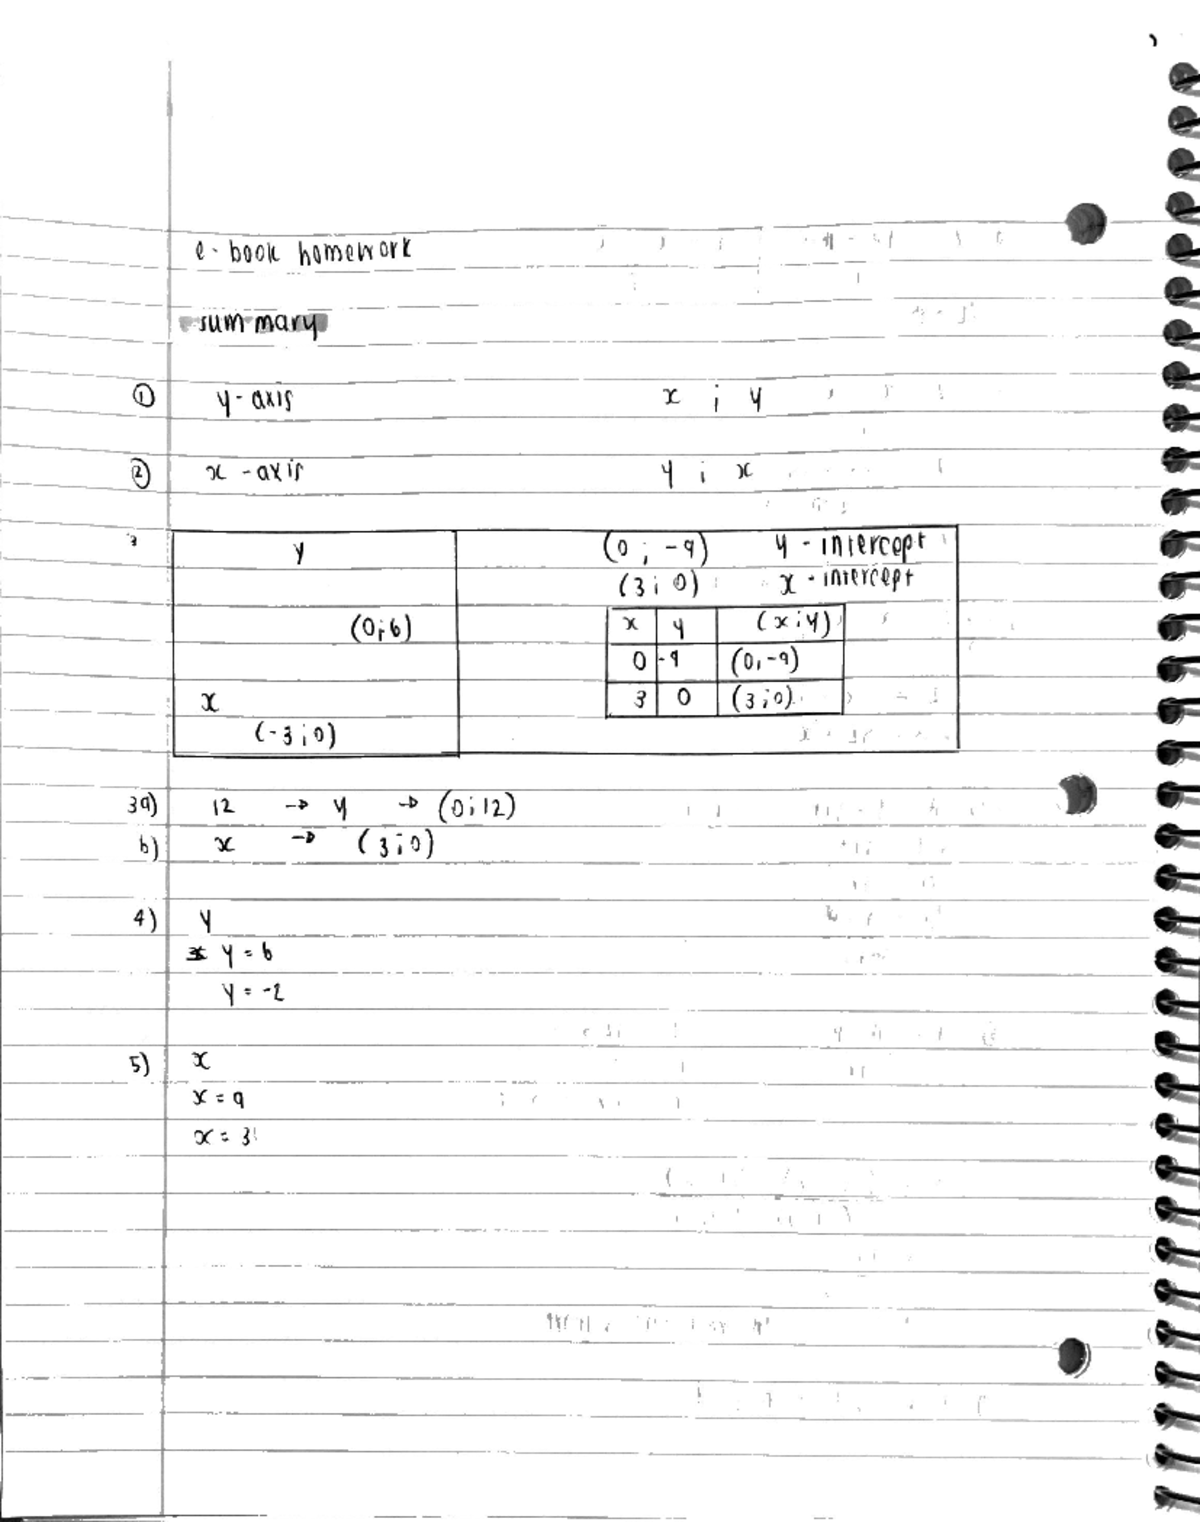 e-book homework
summary
① y-axis x ; y
② x-axis y ; x
3 y (0 ; -9) y-intercept
(3 ; 0) x-intercept
(0;6) x y (x;y)
0 -9 (0,-9)
x 3 0 (3;0)
(-3;0)
3a) 12 → y → (0;12)
b) x → (3;0)
4) y
y = 6
y = -2
5) x
x = 9
x = 3